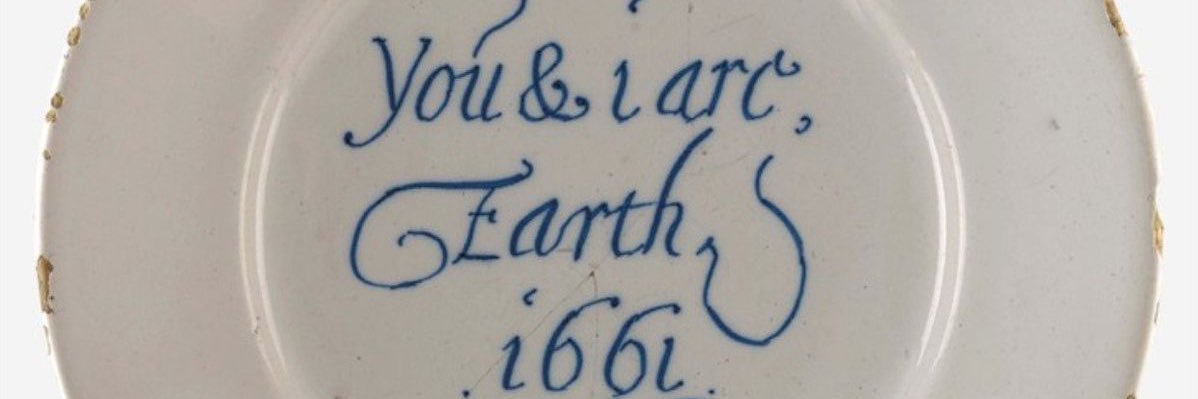 You & i are,
Earth
1661